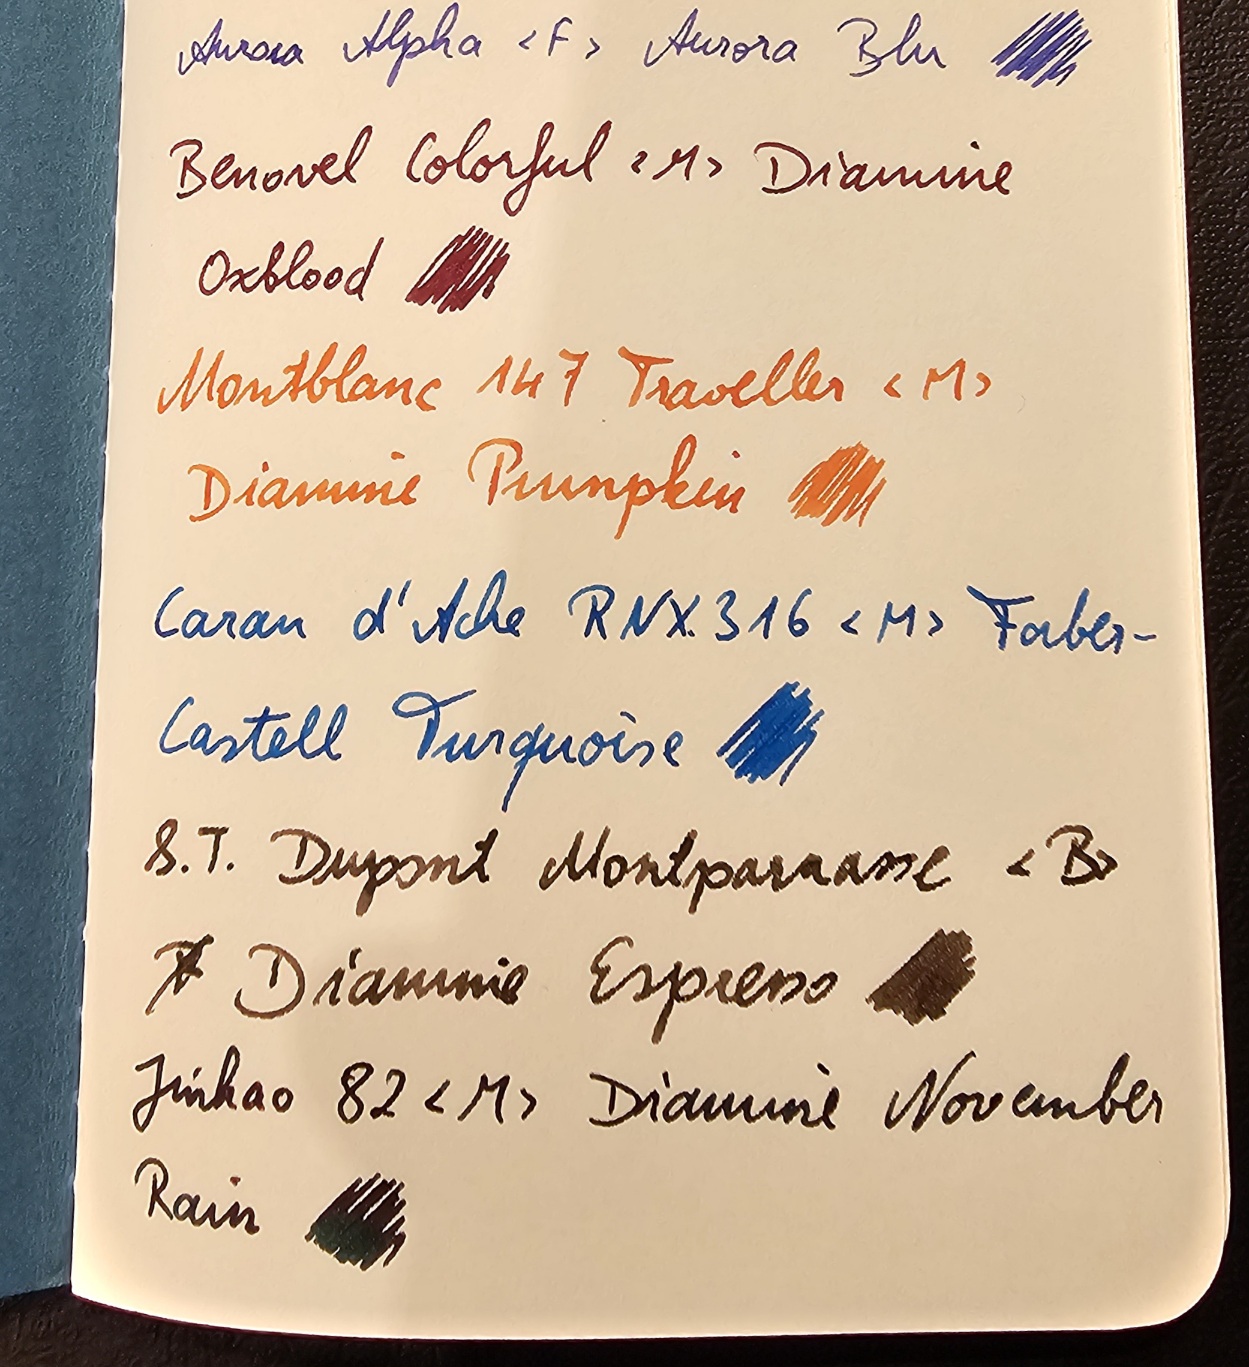 Aurora Alpha <F> Aurora Blu
Benovel Colorful <M> Diamine
Oxblood
Montblanc 147 Traveller <M>
Diamine Pumpkin
Caran d'Ache RNX.316 <M> Faber-
Castell Turquoise
S.T. Dupont Montparnasse <B>
Diamine Espresso
Jinhao 82 <M> Diamine November
Rain